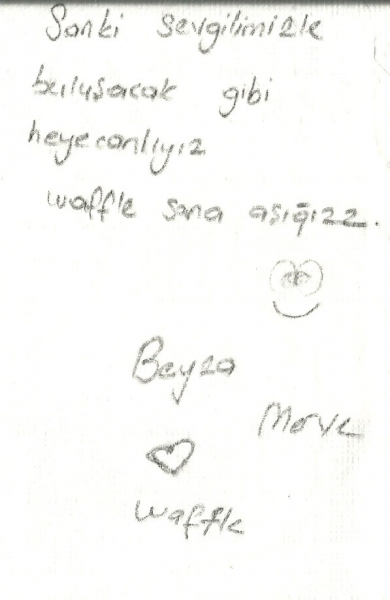 Sanki sevgilimizle
buluşacak gibi
heyecanlıyız
waffle sana aşığızz.
Beyza
Merve
waffle